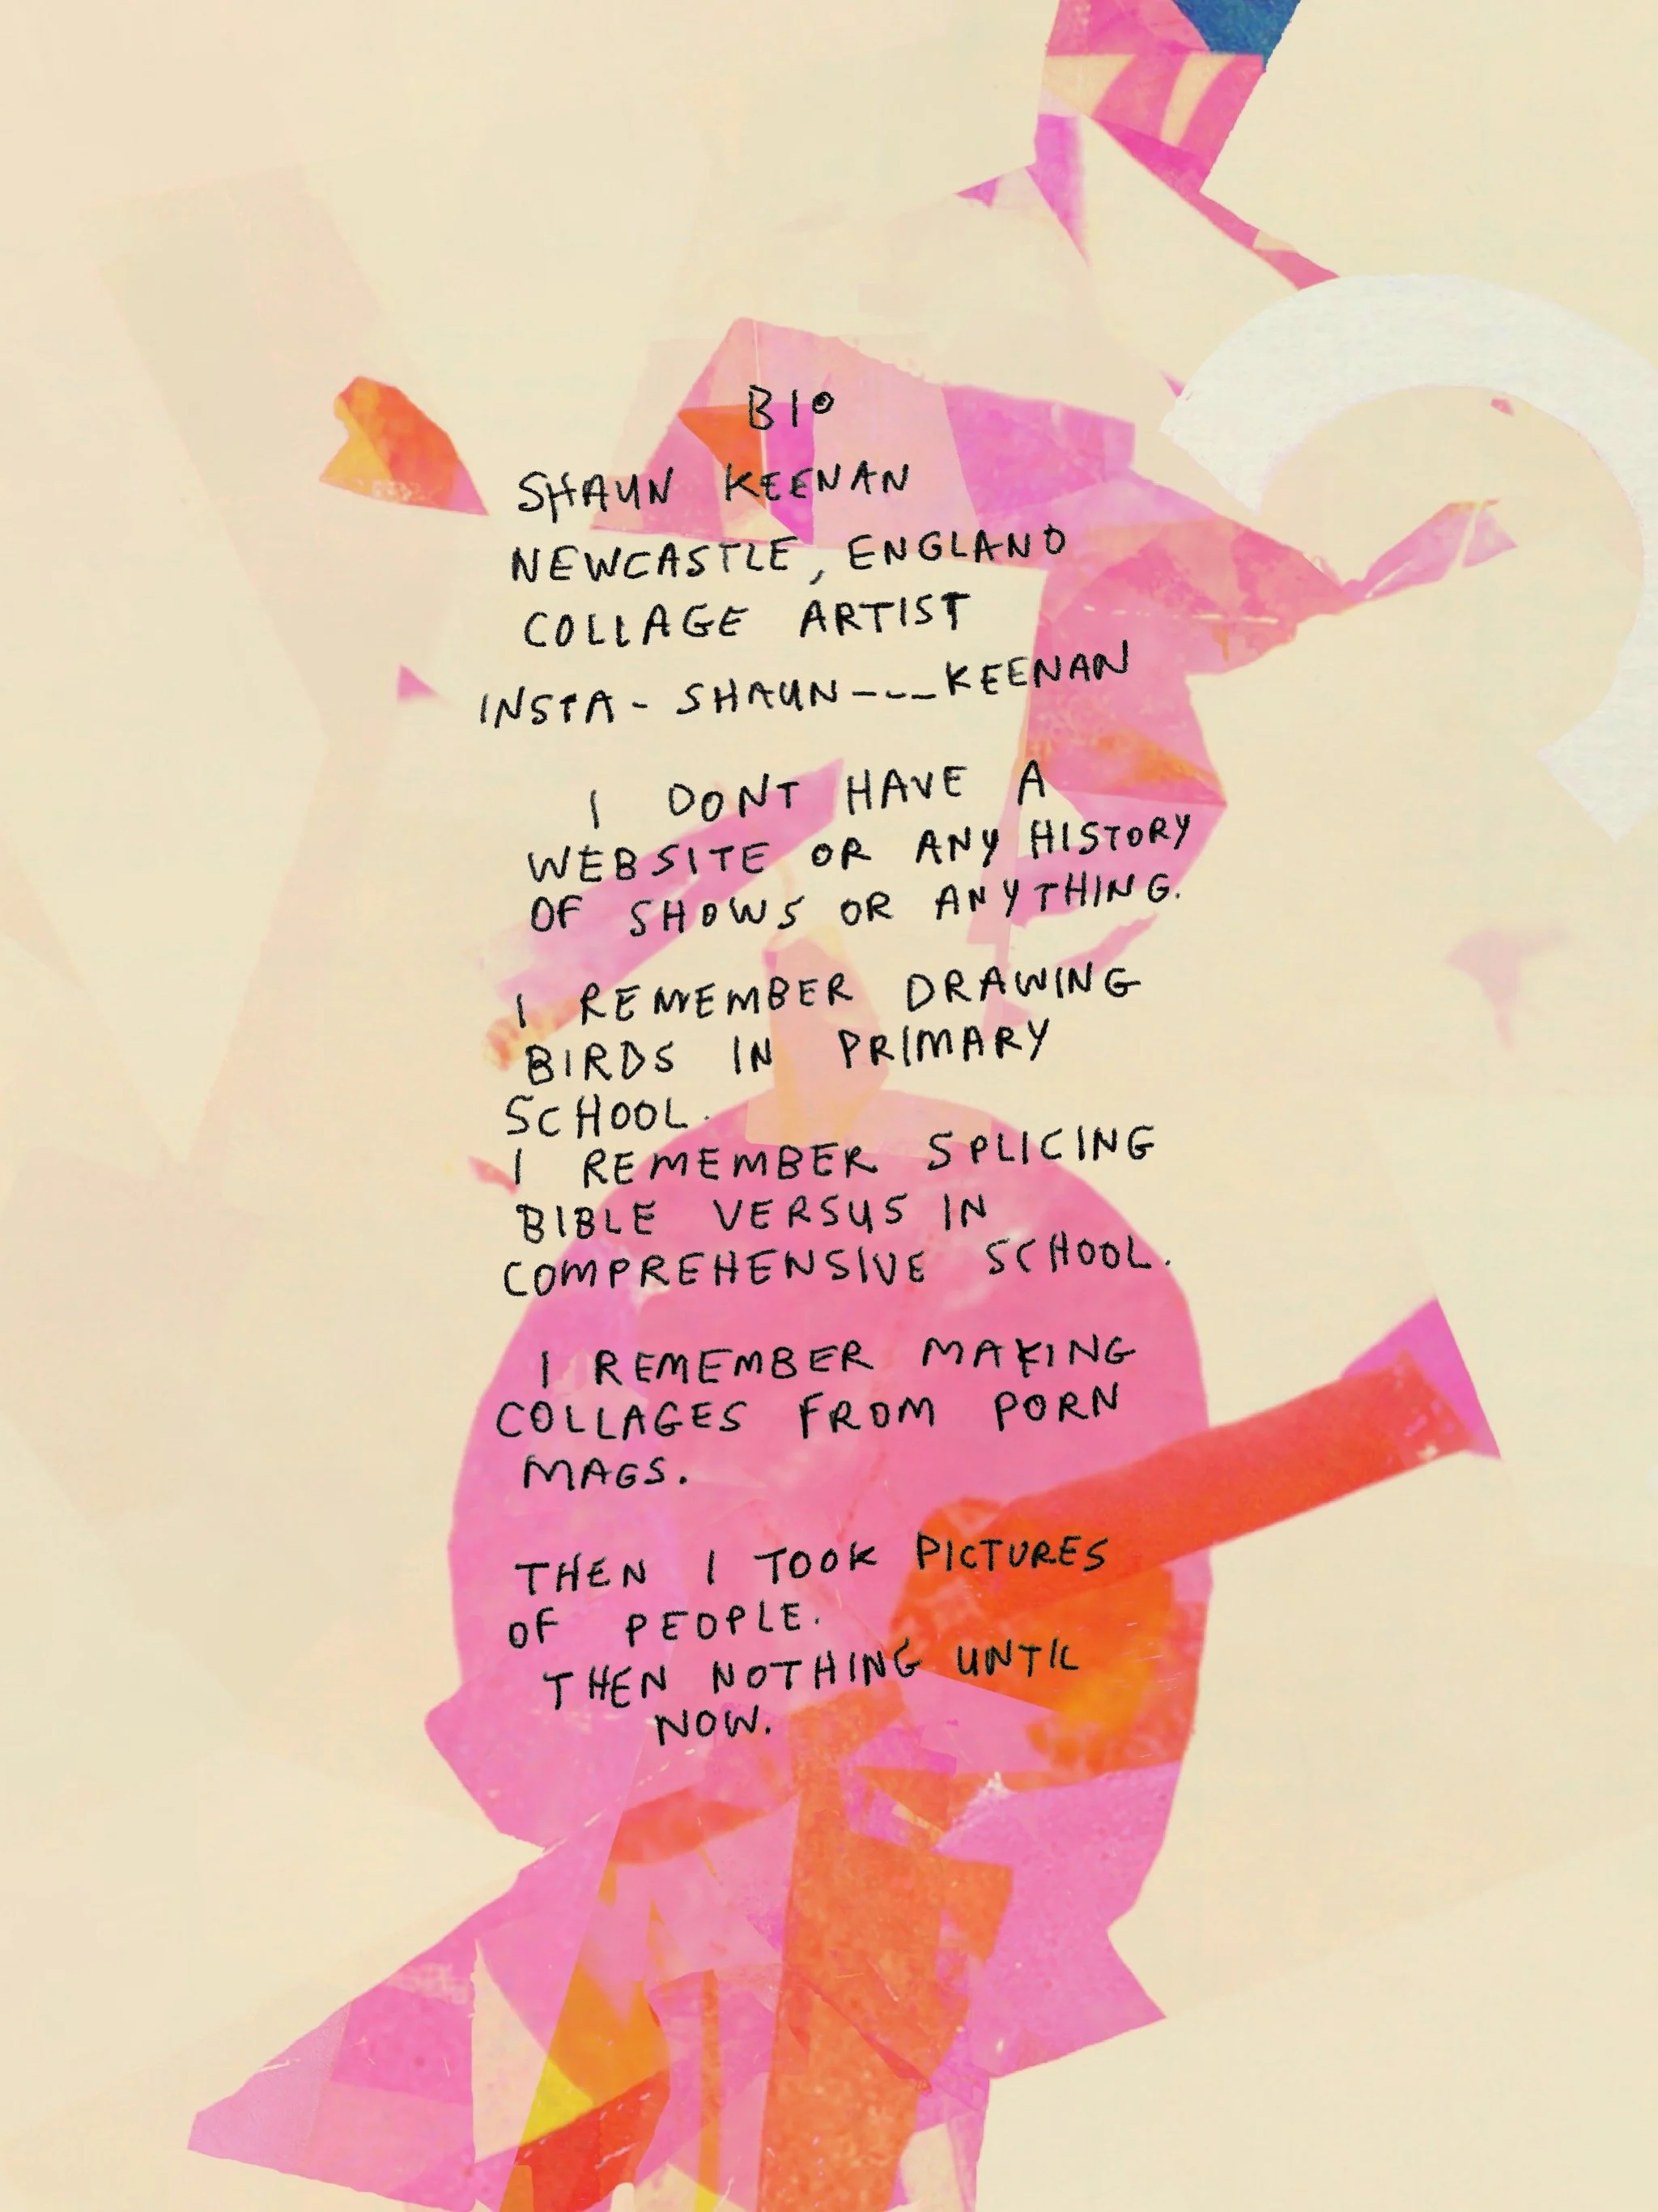 BIO
SHAUN KEENAN
NEWCASTLE, ENGLAND
COLLAGE ARTIST
INSTA - SHAUN---KEENAN
I DONT HAVE A
WEBSITE OR ANY HISTORY
OF SHOWS OR ANYTHING.
I REMEMBER DRAWING
BIRDS IN PRIMARY
SCHOOL.
I REMEMBER SPLICING
BIBLE VERSUS IN
COMPREHENSIVE SCHOOL.
I REMEMBER MAKING
COLLAGES FROM PORN
MAGS.
THEN I TOOK PICTURES
OF PEOPLE.
THEN NOTHING UNTIL
NOW.